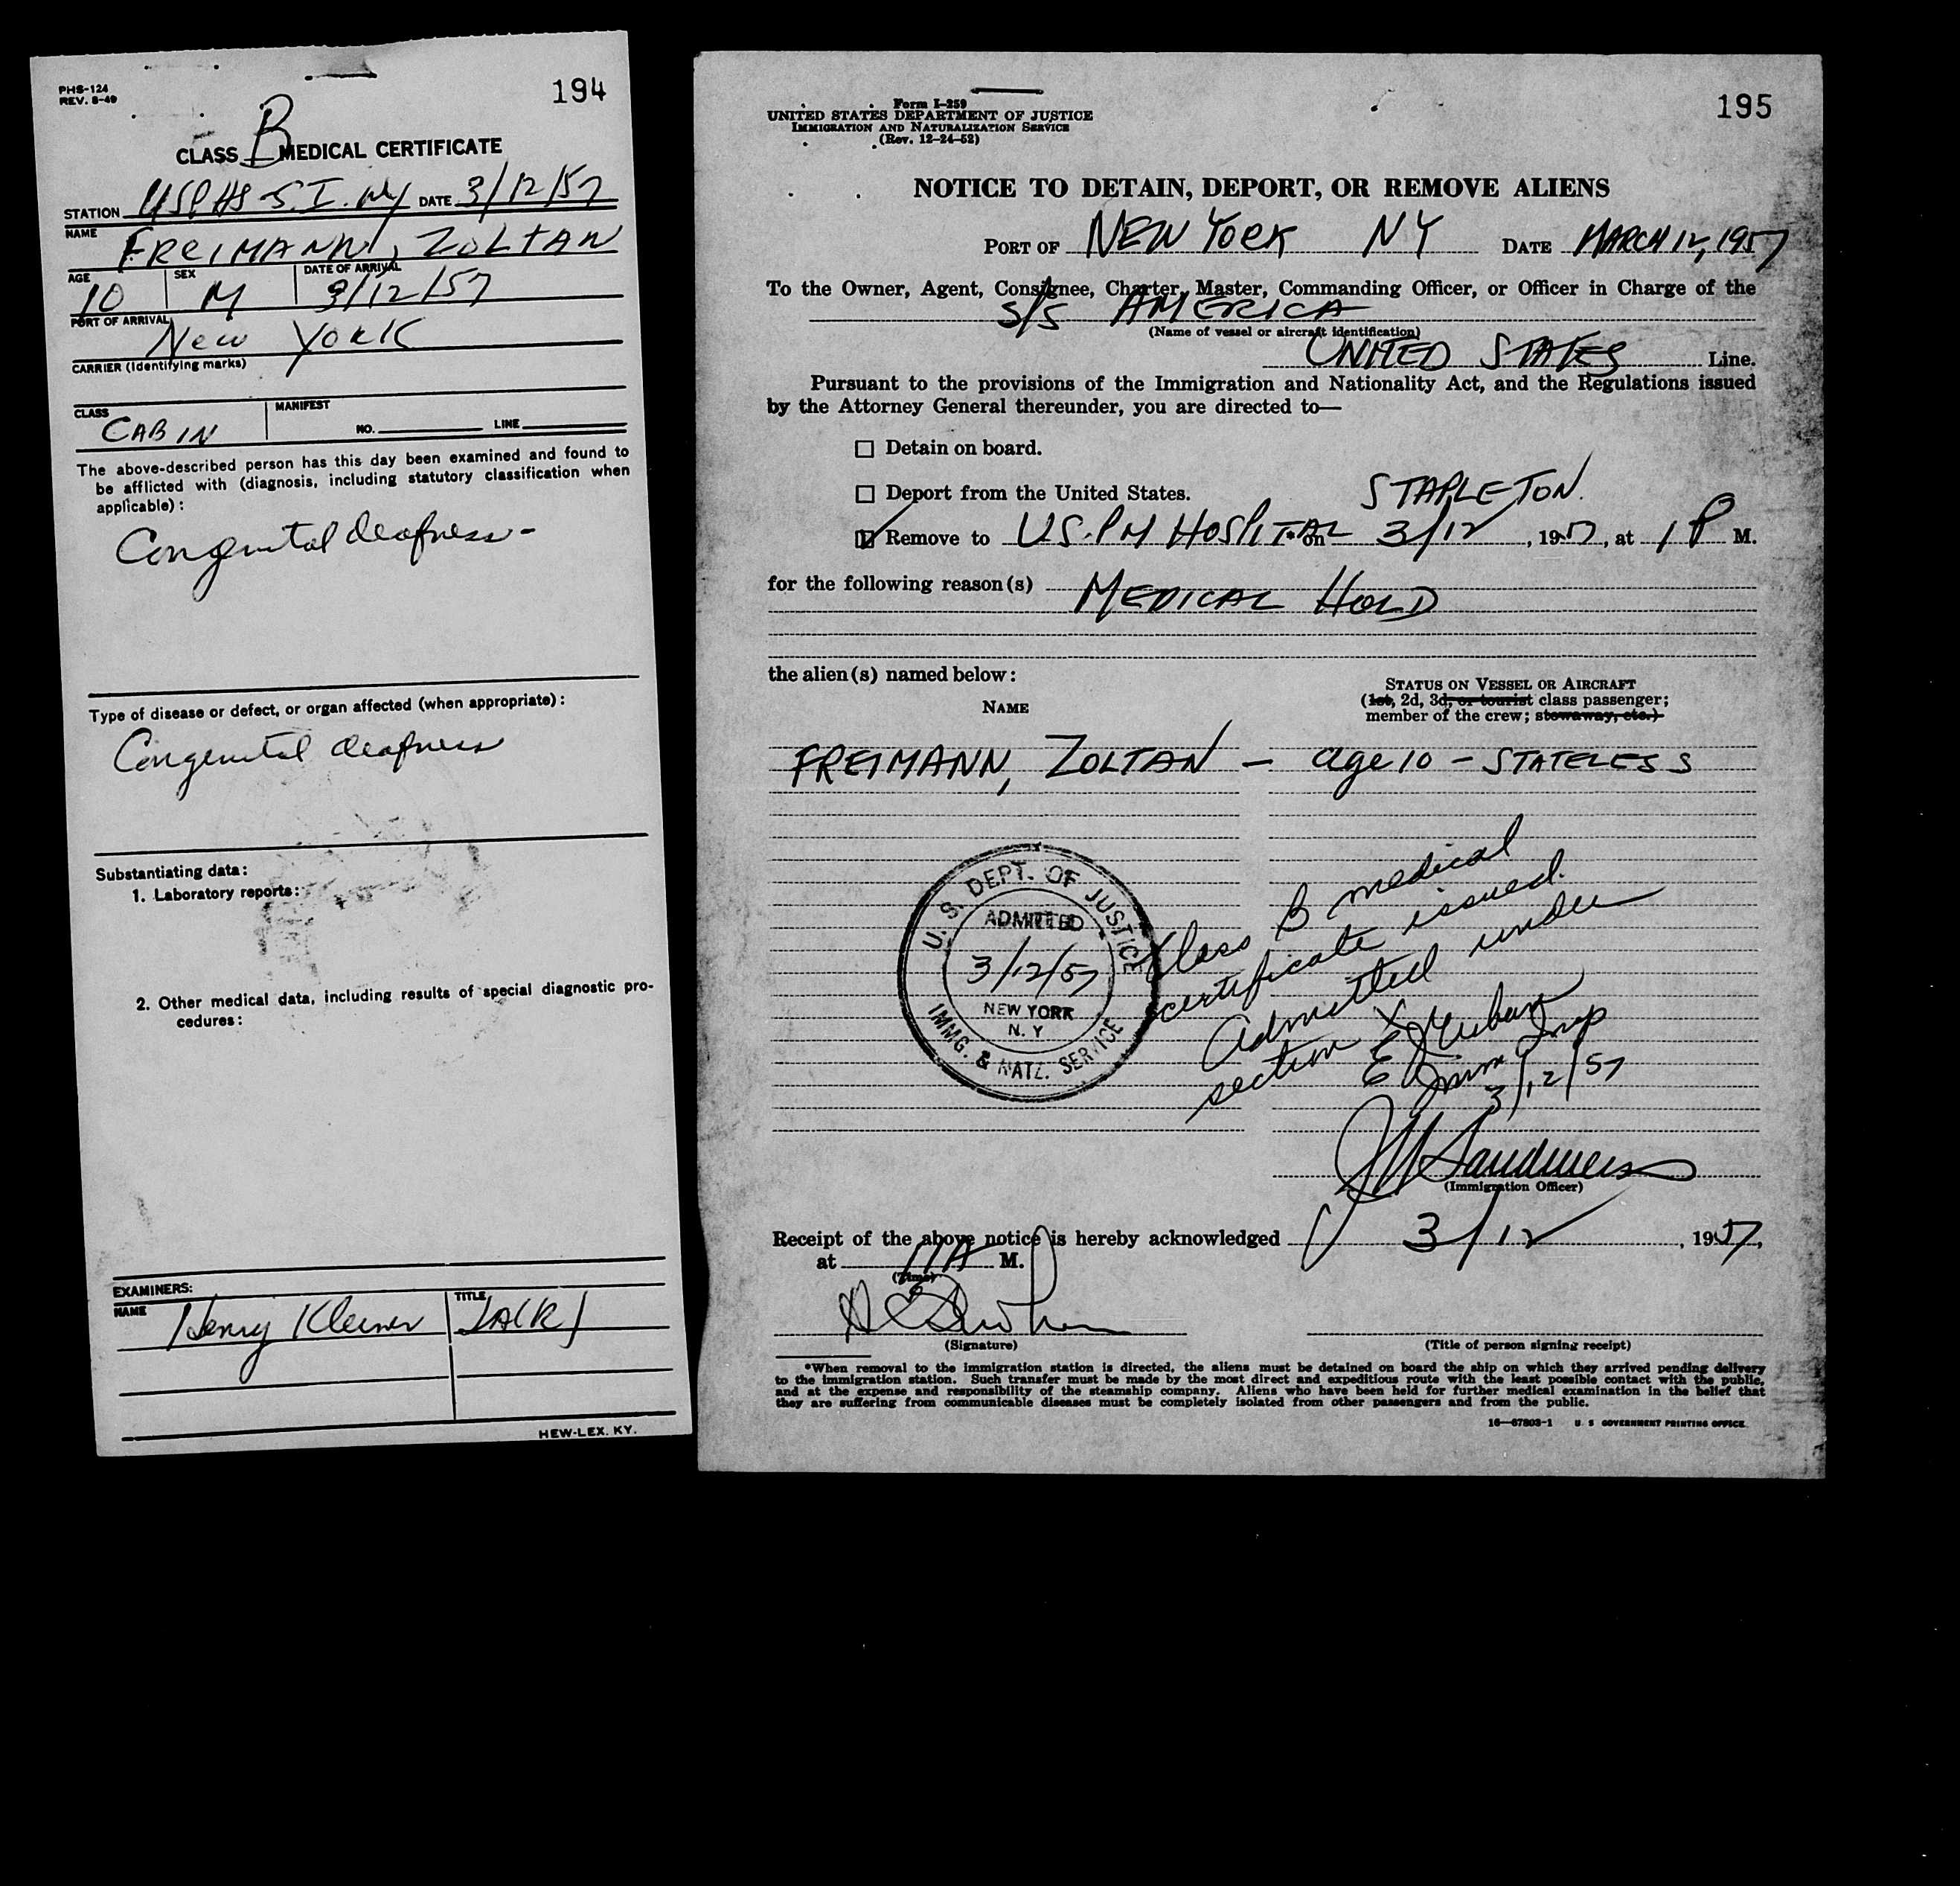 PHS-124
REV. 8-49
194
CLASS B MEDICAL CERTIFICATE
STATION USPHS S.I. NY DATE 3/12/57
NAME
FREIMANN, ZOLTAN
AGE SEX DATE OF ARRIVAL
10 M 3/12/57
PORT OF ARRIVAL
New York
CARRIER (Identifying marks)
CLASS MANIFEST
CABIN NO. LINE
The above-described person has this day been examined and found to
be afflicted with (diagnosis, including statutory classification when
applicable):
Congenital deafness-
Type of disease or defect, or organ affected (when appropriate):
Congenital deafness
Substantiating data:
1. Laboratory reports:
2. Other medical data, including results of special diagnostic pro-
cedures:
EXAMINERS:
NAME TITLE
Henry
HEW-LEX. KY.
Form I-259
UNITED STATES DEPARTMENT OF JUSTICE
IMMIGRATION AND NATURALIZATION SERVICE
(Rev. 12-24-52)
195
NOTICE TO DETAIN, DEPORT, OR REMOVE ALIENS
PORT OF NEW YORK NY DATE MARCH 12, 1957
To the Owner, Agent, Consignee, Charter, Master, Commanding Officer, or Officer in Charge of the
S/S AMERICA
(Name of vessel or aircraft identification)
UNITED STATES Line.
Pursuant to the provisions of the Immigration and Nationality Act, and the Regulations issued
by the Attorney General thereunder, you are directed to—
Detain on board.
Deport from the United States.
STAPLETON.
Remove to U.S.P.H HOSPITAL * on 3/12, 1957, at 1 P M.
for the following reason(s) MEDICAL HOLD
the alien(s) named below:
NAME
STATUS ON VESSEL OR AIRCRAFT
(1st, 2d, 3d, or tourist class passenger;
member of the crew; stowaway, etc.)
FREIMANN, ZOLTAN — age 10 — STATELESS
U. S. DEPT. OF JUSTICE
ADMITTED
3/12/57
NEW YORK
N. Y
IMMG. & NATZ. SERVICE
Class B medical
certificate issued.
Admitted under
section
Imm Insp
3/12/57
(Immigration Officer)
Receipt of the above notice is hereby acknowledged 3/12, 1957,
at 11A M.
(Time)
(Signature)
(Title of person signing receipt)
*When removal to the immigration station is directed, the aliens must be detained on board the ship on which they arrived pending delivery
to the immigration station. Such transfer must be made by the most direct and expeditious route with the least possible contact with the public,
and at the expense and responsibility of the steamship company. Aliens who have been held for further medical examination in the belief that
they are suffering from communicable diseases must be completely isolated from other passengers and from the public.
16—67803-1 U. S. GOVERNMENT PRINTING OFFICE